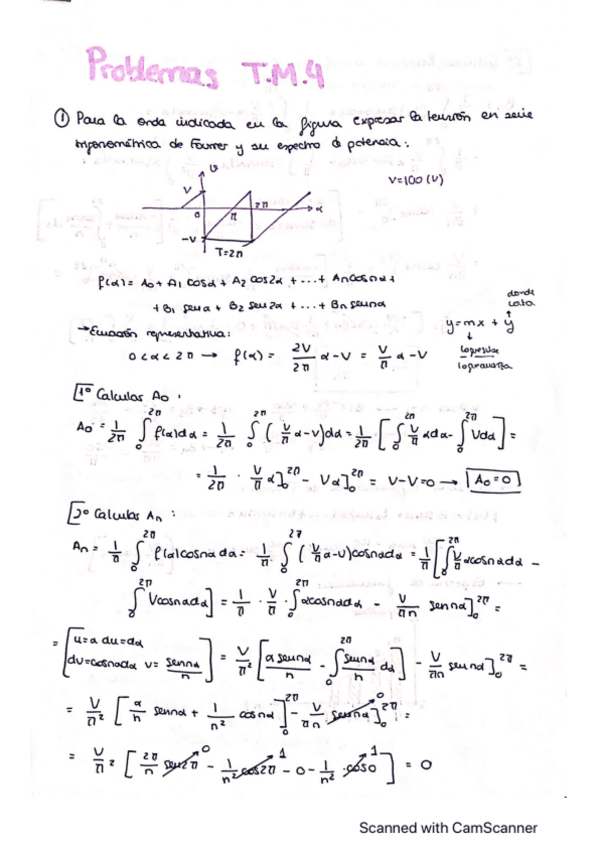 Problemas T.M.4
① Para la onda indicada en la figura expresar la tensión en serie
trigonométrica de Fourier y su espectro de potencia:
v
V
V=100 (V)
0 π 2π α
-V
T=2π
f(α) = A₀ + A₁ cosα + A₂ cos2α + ... + Aₙcosnα +
+ B₁ senα + B₂ sen2α + ... + Bₙ sennα
donde
corta
→Ecuación representativa:
y=mx + y
0<α<2π → f(α) = 2V/2π α - V = V/π α - V
lo que sube
lo que avanza
1º Calculos A₀:
A₀ = 1/2π ∫₀^2π f(α)dα = 1/2π ∫₀^2π (V/π α-V)dα = 1/2π [∫₀^2π V/π αdα - ∫₀^2π Vdα] =
= 1/2π · V/π α]₀^2π - Vα]₀^2π = V-V=0 → A₀=0
2º Calculos Aₙ:
Aₙ = 1/π ∫₀^2π f(α)cosnα dα = 1/π ∫₀^2π (V/π α-V)cosnαdα = 1/π [∫₀^2π V/π αcosnαdα -
∫₀^2π Vcosnαdα] = 1/π · V/π · ∫₀^2π αcosnαdα - V/πn sennα]₀^2π =
= [u=α du=dα
dv=cosnαdα v= sennα/n] = V/π² [α sennα/n - ∫₀^2π sennα/n dα] - V/πn sennα]₀^2π =
= V/π² [α/n sennα + 1/n² cosnα]₀^2π - V/πn sennα]₀^2π 0 =
= V/π² [2π/n sen2π 0 - 1/n² cos2π 1 - 0 - 1/n² · cos0 1] = 0
Scanned with CamScanner